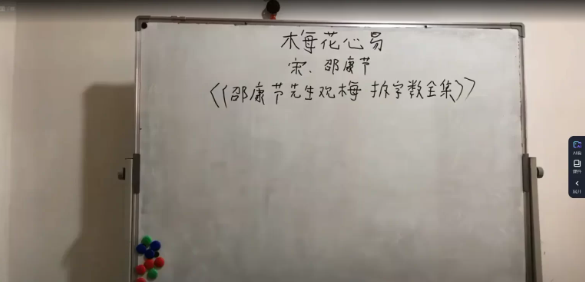 梅花心易
宋、邵康节
《邵康节先生观梅拆字数全集》